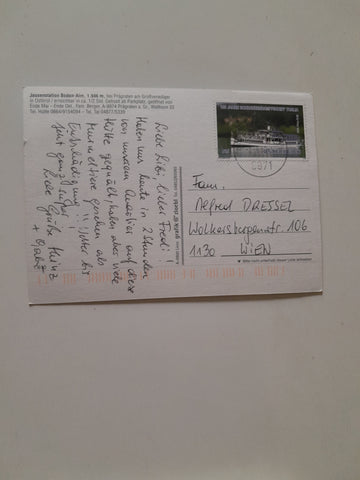 Jausenstation Bodenalm, 1.948 m, bei Prägraten am Großvenediger
in Osttirol / erreichbar in ca. 1/2 Std. Gehzeit ab Parkplatz, geöffnet von
Ende Mai - Ende Okt., Fam. Berger, A-9974 Prägraten a. Gr., Wallhorn
Tel. Hütte 0664/9154094 - Tel. 04877/5339
Liebe Bibi, lieber Fred!
Haben uns heute in 2 Stunden
von unserem Quartier auf diese
Hütte gequält, haben aber viele
Murmeltiere gesehen als
Entschädigung!!! Wetter bis
jetzt ganz gut.
Liebe Grüße Heinz
+ Gabi
9971
Fam.
Alfred DRESSEL
Wolkersbergenstr. 106
1130 WIEN
Bitte nicht unterhalb dieser Linie schreiben